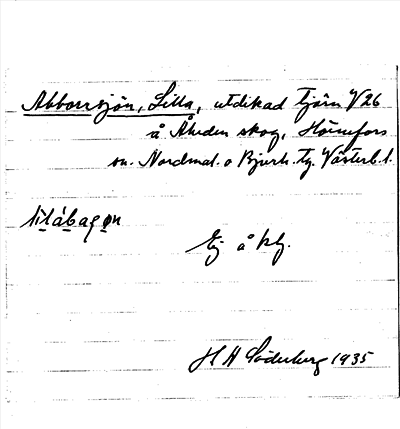 Abborrsjön, Lilla, utdikad tjärn V26
å Åheden skog, Hörnefors
sn. Nordmal. o Bjurh. tg. Västerb. l.
lìlábagọn
Ej å kg.
H H Söderberg 1935